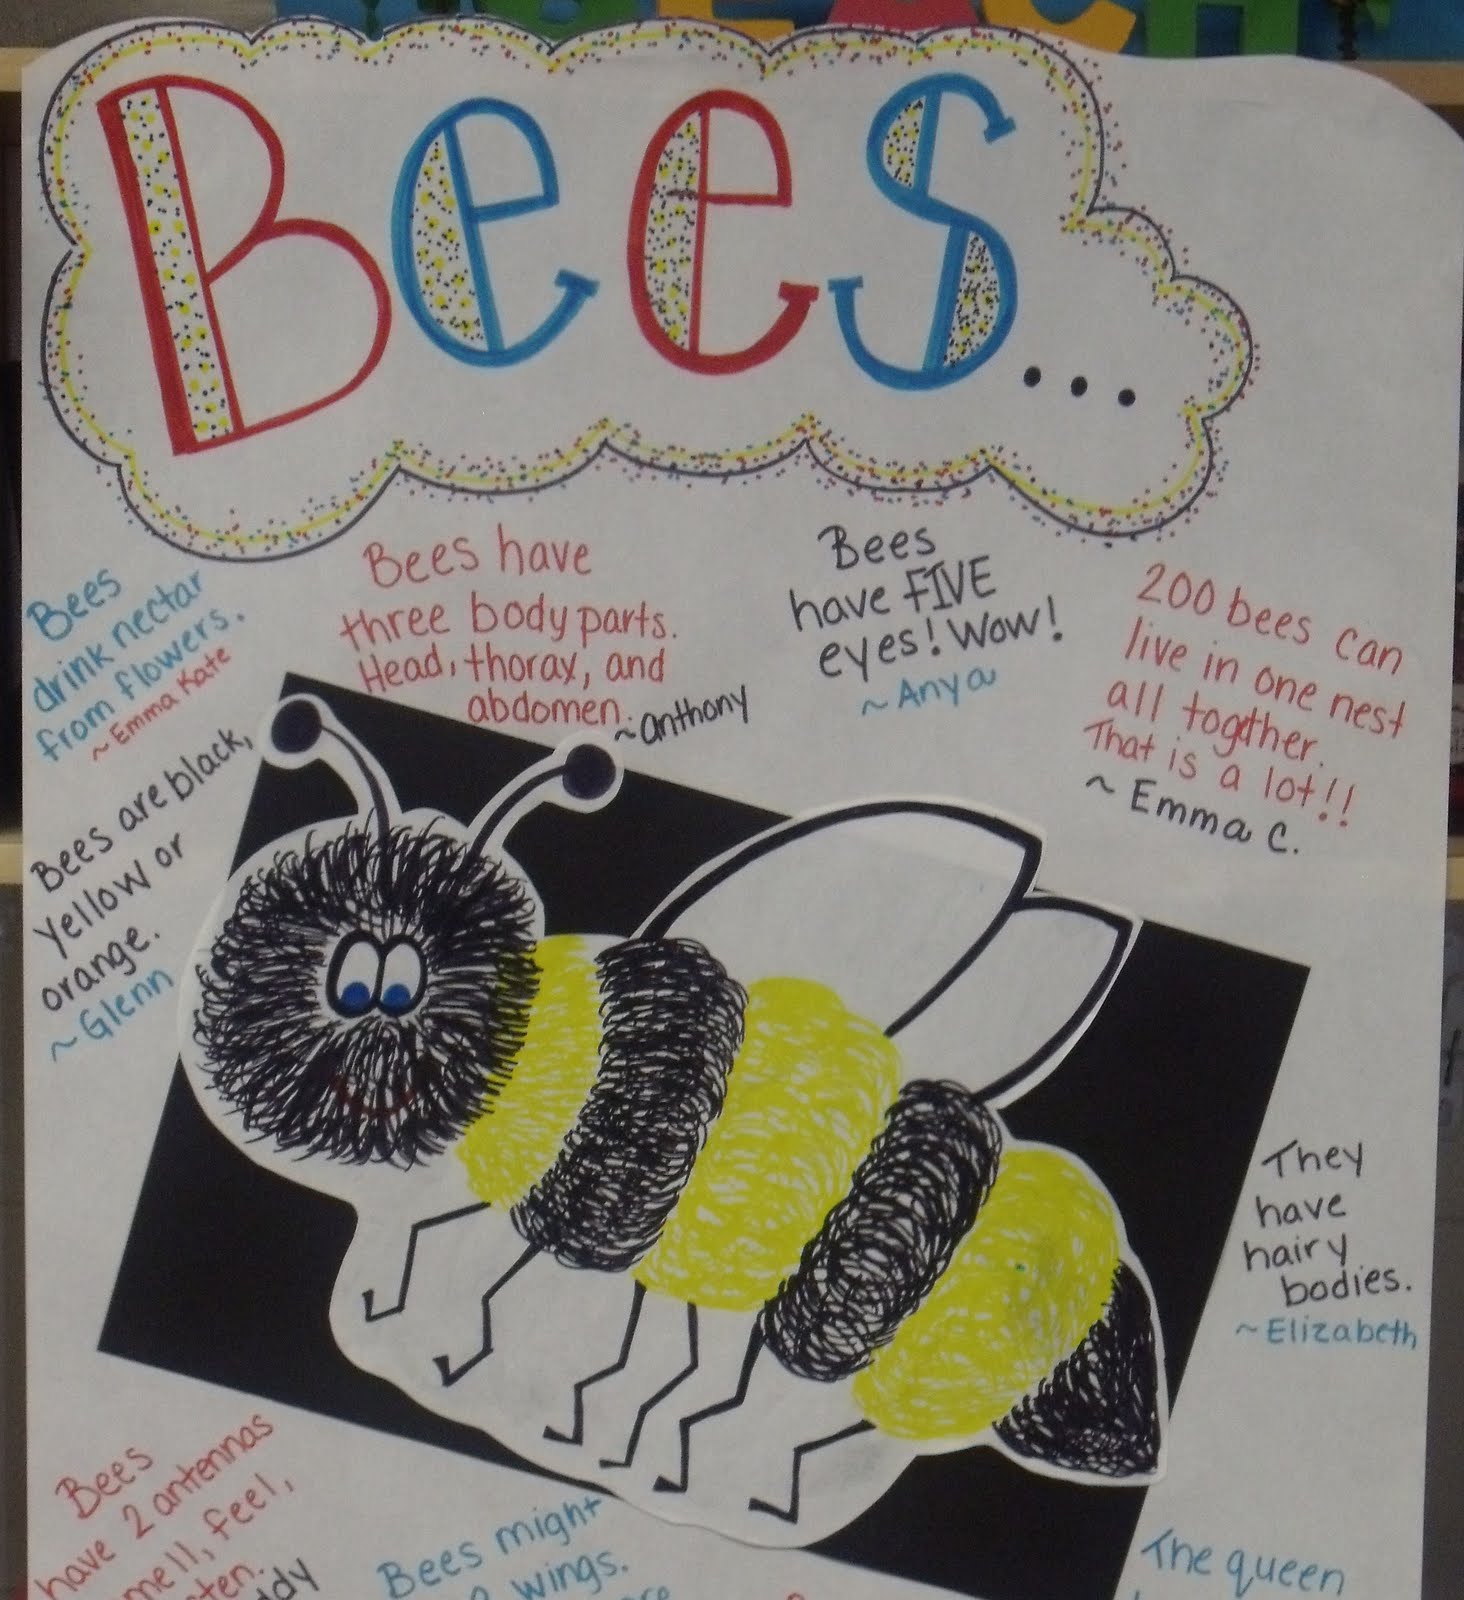 Bees...
Bees
drink nectar
from flowers.
~Emma Kate
Bees have
three body parts.
Head, thorax, and
abdomen.
~anthony
Bees
have FIVE
eyes! Wow!
~Anya
200 bees can
live in one nest
all together.
That is a lot!!
~Emma C.
Bees are black,
yellow or
orange.
~Glenn
They
have
hairy
bodies.
~Elizabeth
Bees
have 2 antennas
feel,
Bees might
wings.
The queen